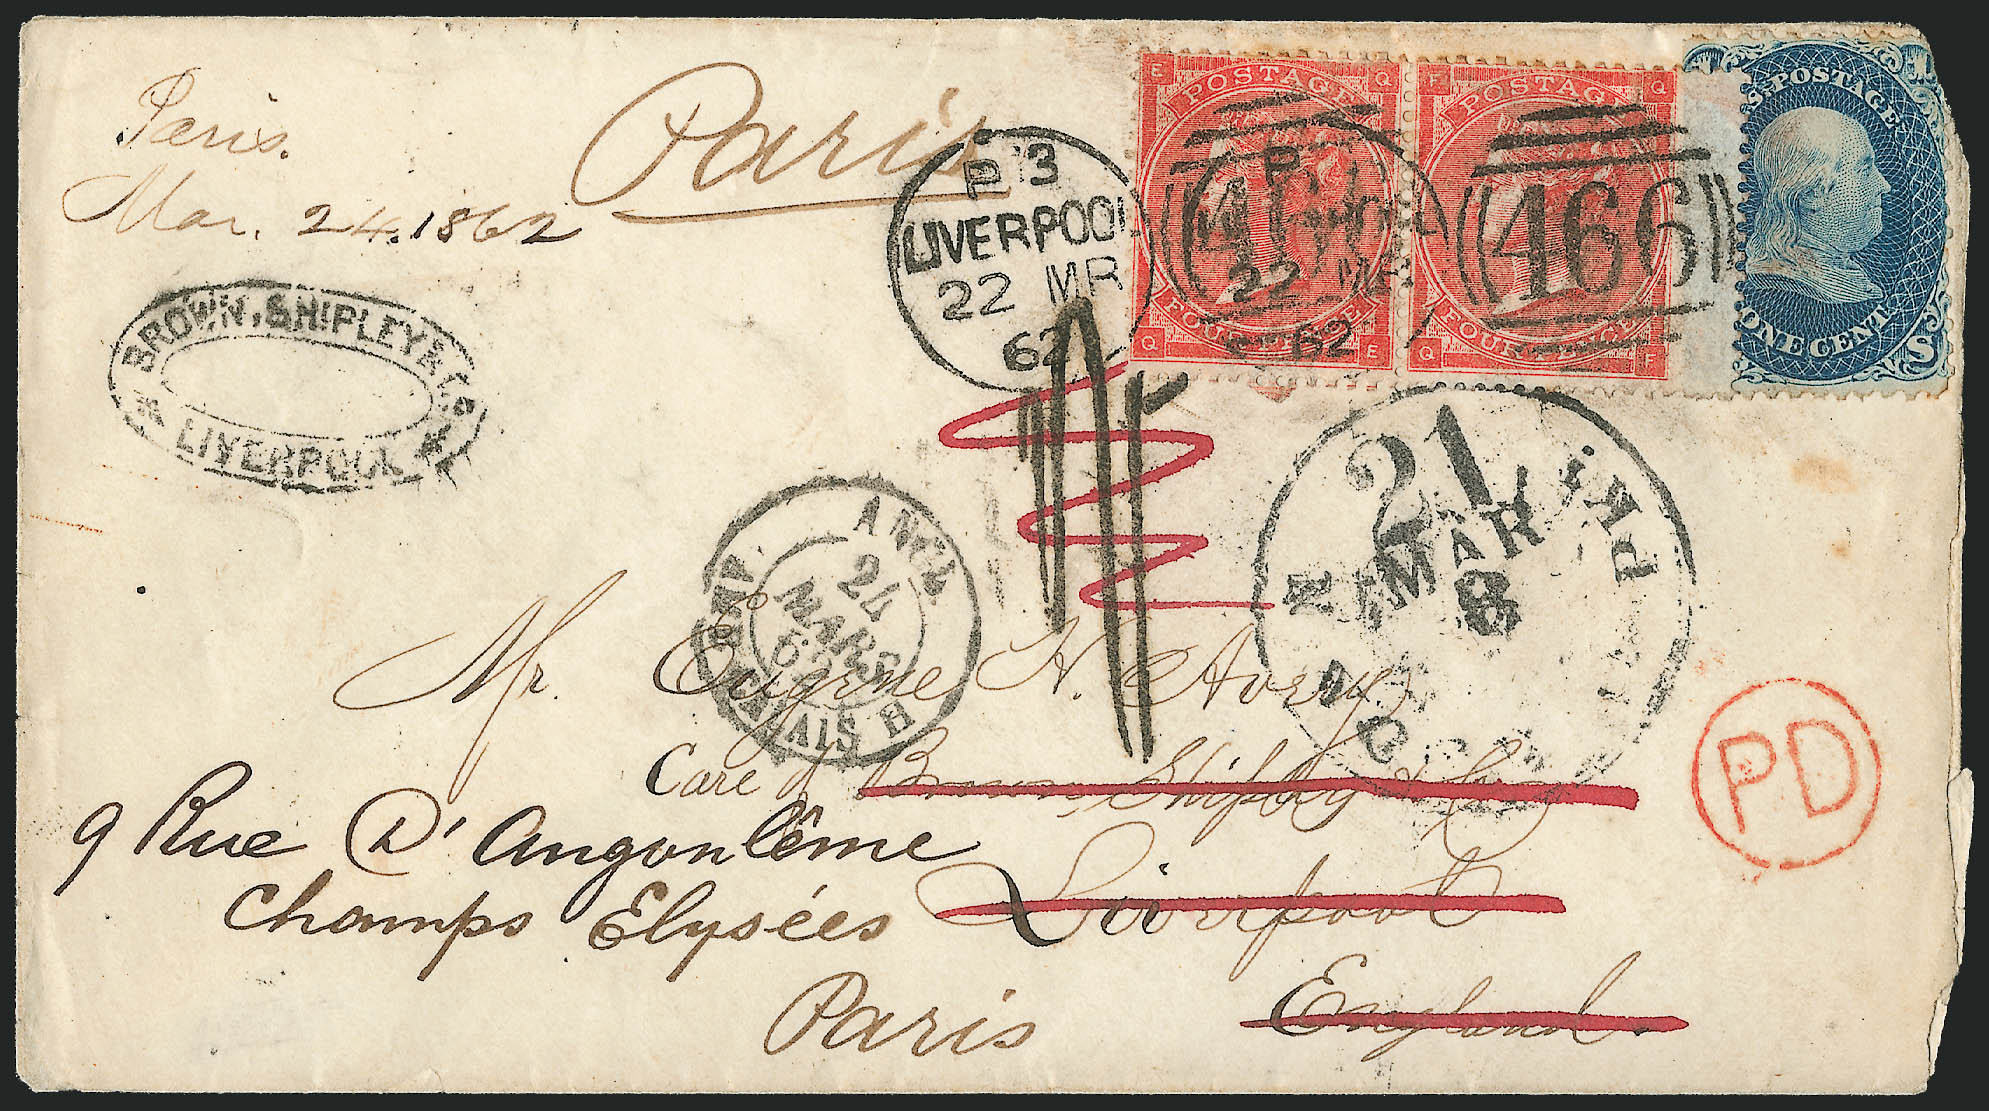 Paris.
Mar. 24. 1862
Paris
BROWN, SHIPLEY & Co
LIVERPOOL
P 3
LIVERPOOL
22 MR
62
E Q
POSTAGE
FOUR PENCE
Q E
F Q
POSTAGE
FOUR PENCE
Q F
22 MR
62
466
U.S. POSTAGE
ONE CENT
S
21
MAR
8
PKT
ANGL
24
MARS
62
AMB. CALAIS H
Mr. Eugene H. Avery
Care of Brown Shipley & Co
9 Rue D'Angoulême
Liverpool
Champs Elysées
England
Paris
PD